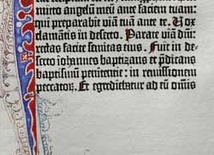 mitto angelū meū ante faciem tuam
qui preparabit viā tuā ante te. Vox
clamātis in deserto. Parate viā dn̄i:
rectas facite semitas eius. Fuit in de-
serto iohannes baptizans et p̄dicans
baptismū penitentie: in remissionem
peccatorū. Et egrediebatur ad eū omnis